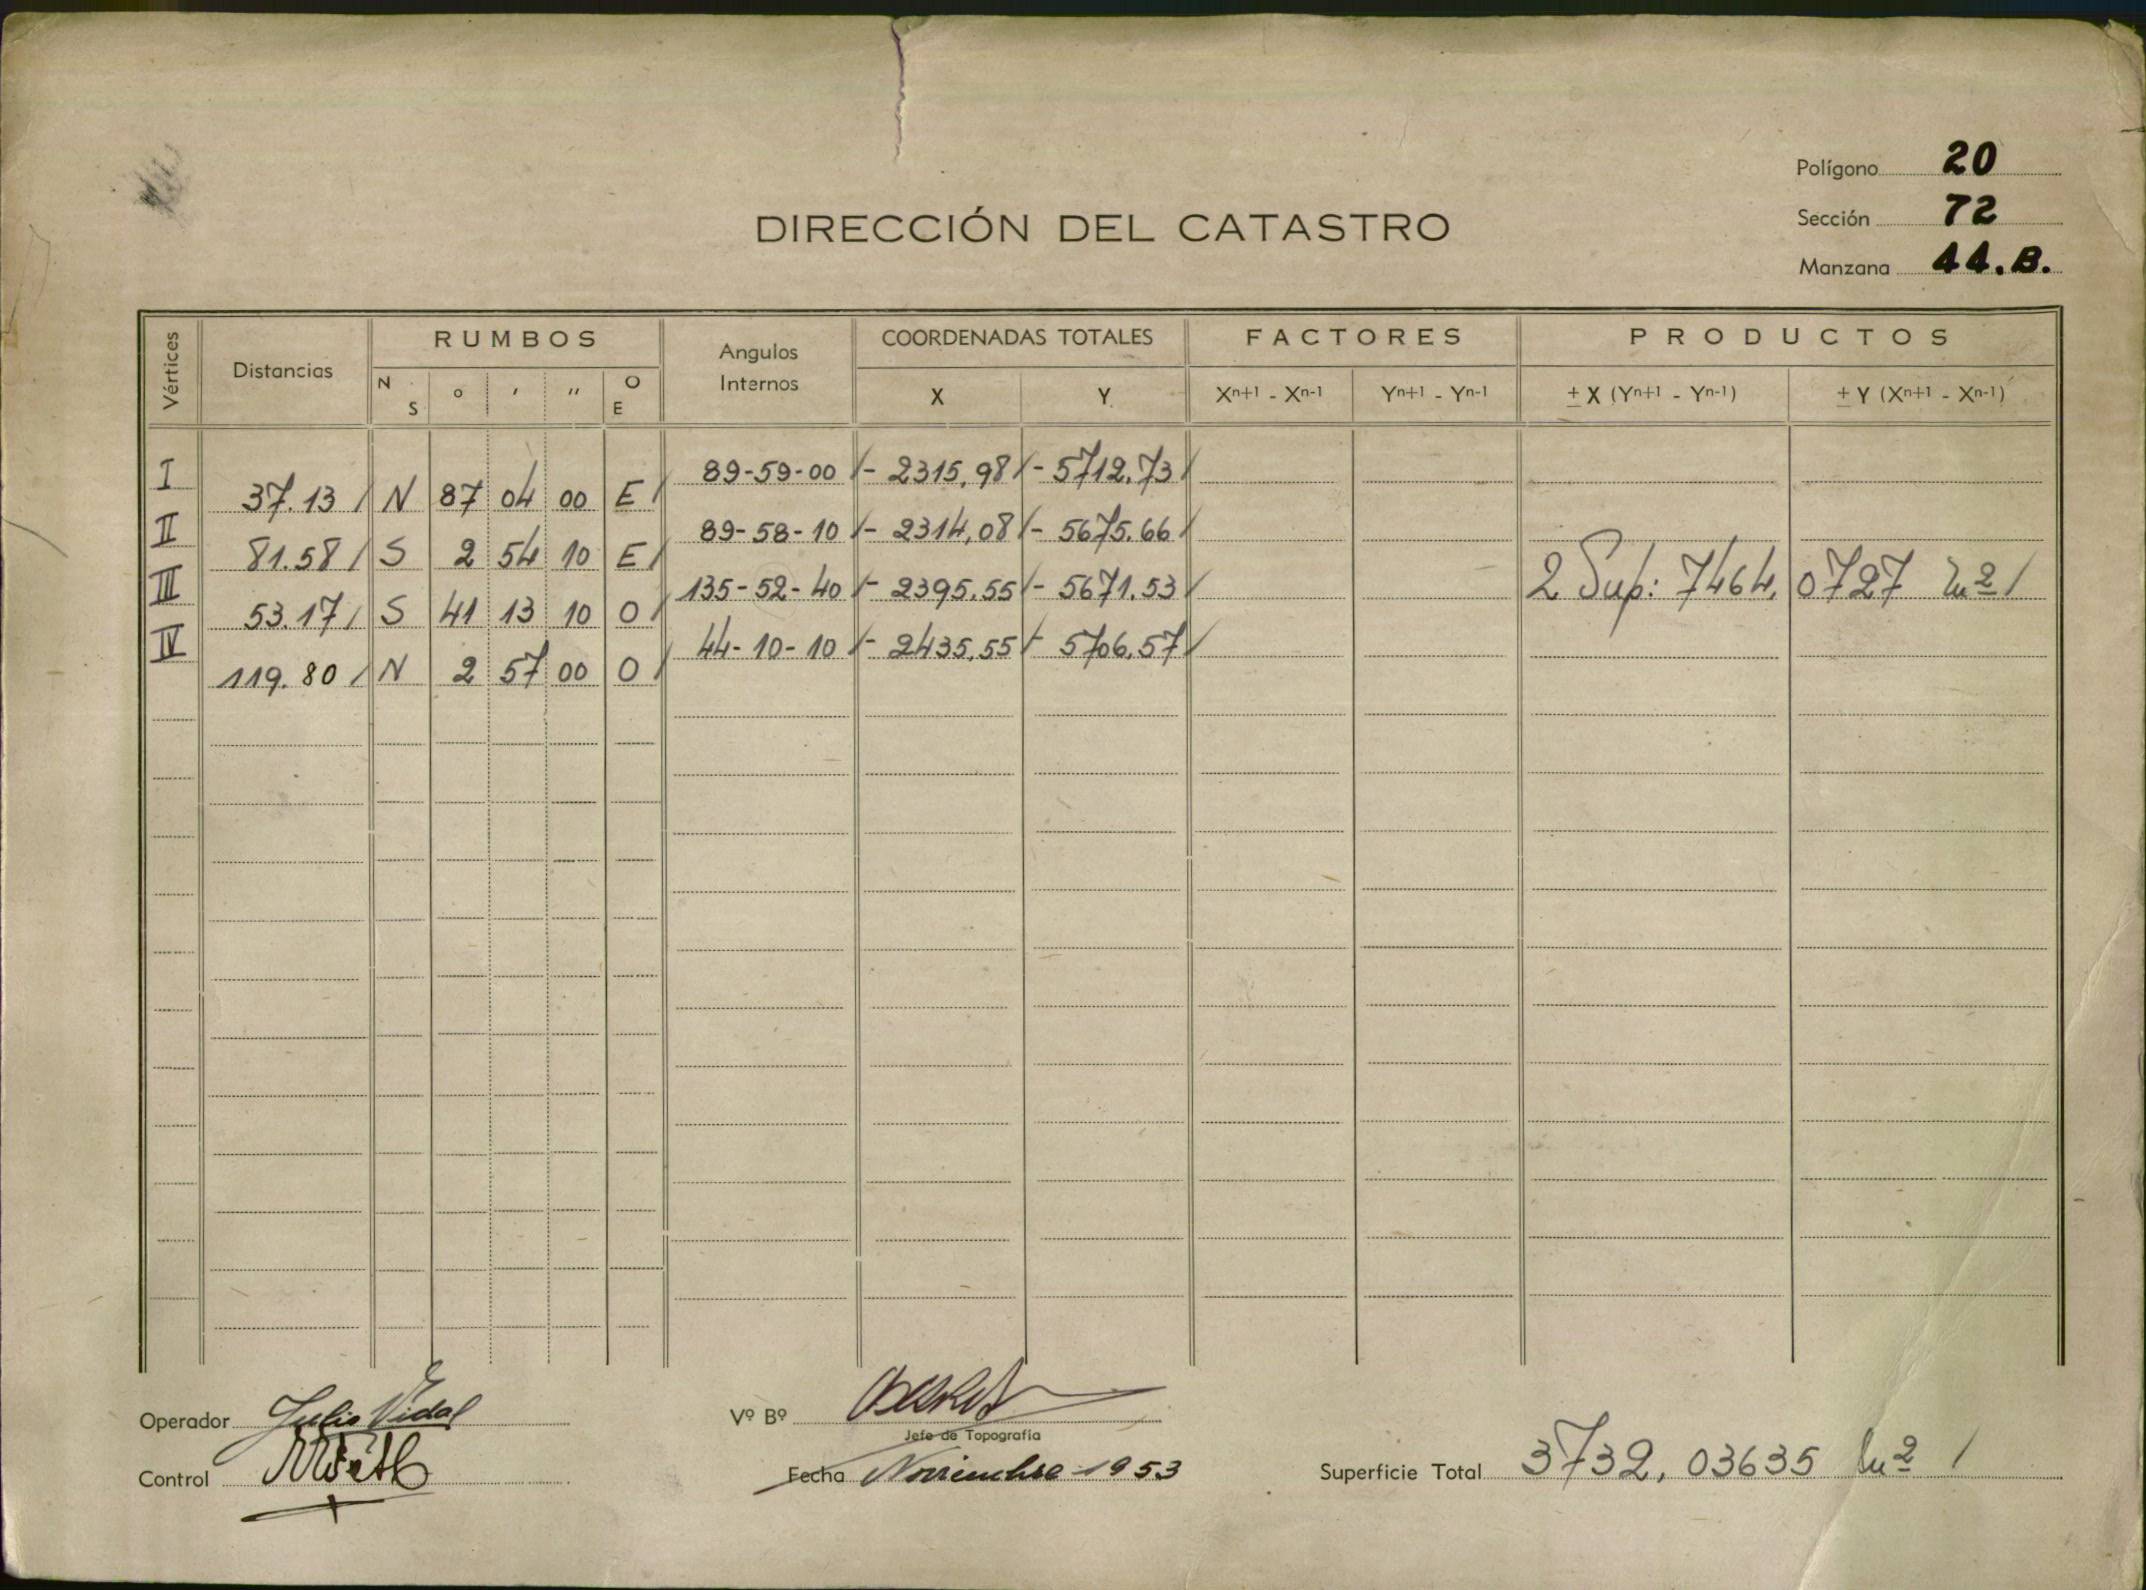 Polígono 20
DIRECCIÓN DEL CATASTRO
Sección 72
Manzana 44.B.
Vértices Distancias RUMBOS Angulos Internos COORDENADAS TOTALES FACTORES PRODUCTOS
N S ° ' " O E X Y Xn+1 - Xn-1 Yn+1 - Yn-1 ± X (Yn+1 - Yn-1) ± Y (Xn+1 - Xn-1)
I 89-59-00 /- 2315,98 /- 5712.73 /
37.13 / N 87 04 00 E /
II 89-58-10 /- 2314,08 /- 5675.66 /
81.58 / S 2 54 10 E /
III 135-52-40 /- 2395.55 /- 5671.53 / 2 Sup: 7464,0727 m2 /
53.17 / S 41 13 10 O /
IV 44-10-10 /- 2435,55 /- 5706,57 /
119.80 / N 2 57 00 O /
Operador Julio Vidal
Vº Bº
Jefe de Topografía
Control
Fecha Noviembre-1953
Superficie Total 3732,03635 m2 /